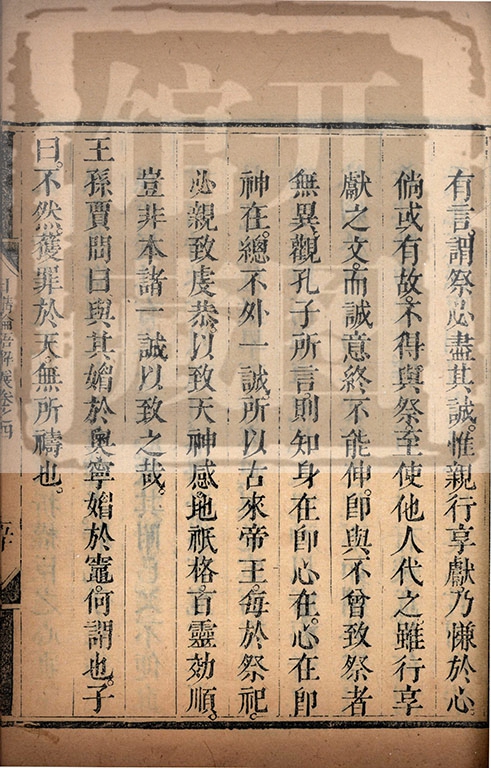 有言謂祭必盡其誠。惟親行享獻乃慊於心。
倘或有故。不得與祭至使他人代之雖行享
獻之文。而誠意終不能伸。卽與不曾致祭者
無異。觀孔子所言則知身在卽心在。心在卽
神在。總不外一誠。所以古來帝王。每於祭祀。
必親致虔恭。以致天神感。地祇格。百靈効順。
豈非本諸一誠以致之哉。
王孫賈問曰與其媚於奧寧媚於竈。何謂也。子
曰。不然。獲罪於天。無所禱也。
日講論語解義卷之四